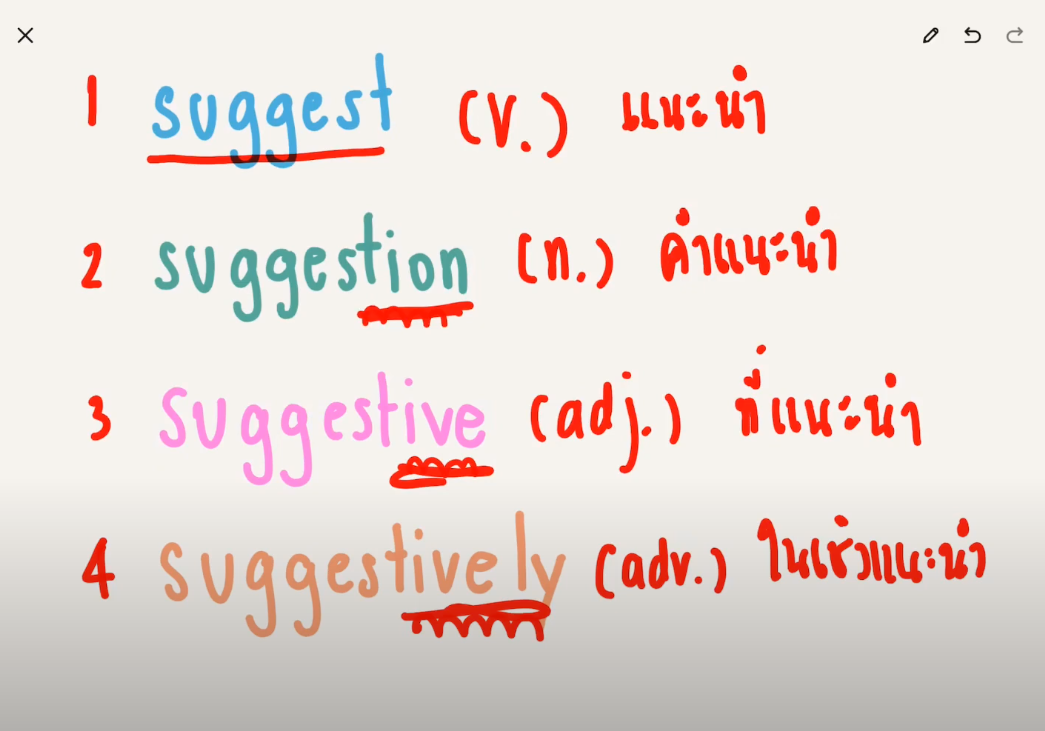 1 suggest (V.) แนะนำ
2 suggestion (n.) คำแนะนำ
3 suggestive (adj.) ที่แนะนำ
4 suggestively (adv.) ในเชิงแนะนำ